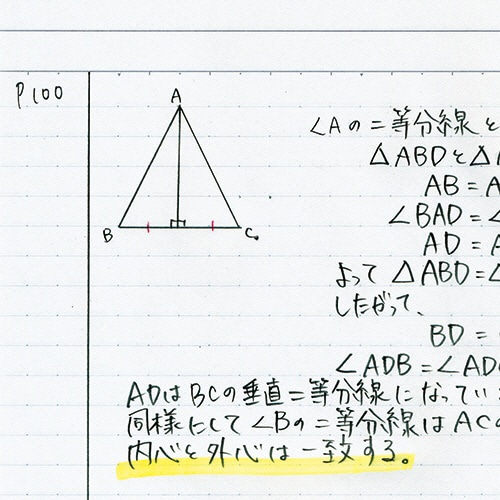 P100
A
B
C
∠Aの二等分線と
△ABDと△
AB=A
∠BAD=∠
AD=A
よって △ABD≡△
したがって、
BD=
∠ADB=∠AD
ADはBCの垂直二等分線になってい
同様にして∠Bの二等分線はACの
内心と外心は一致する。